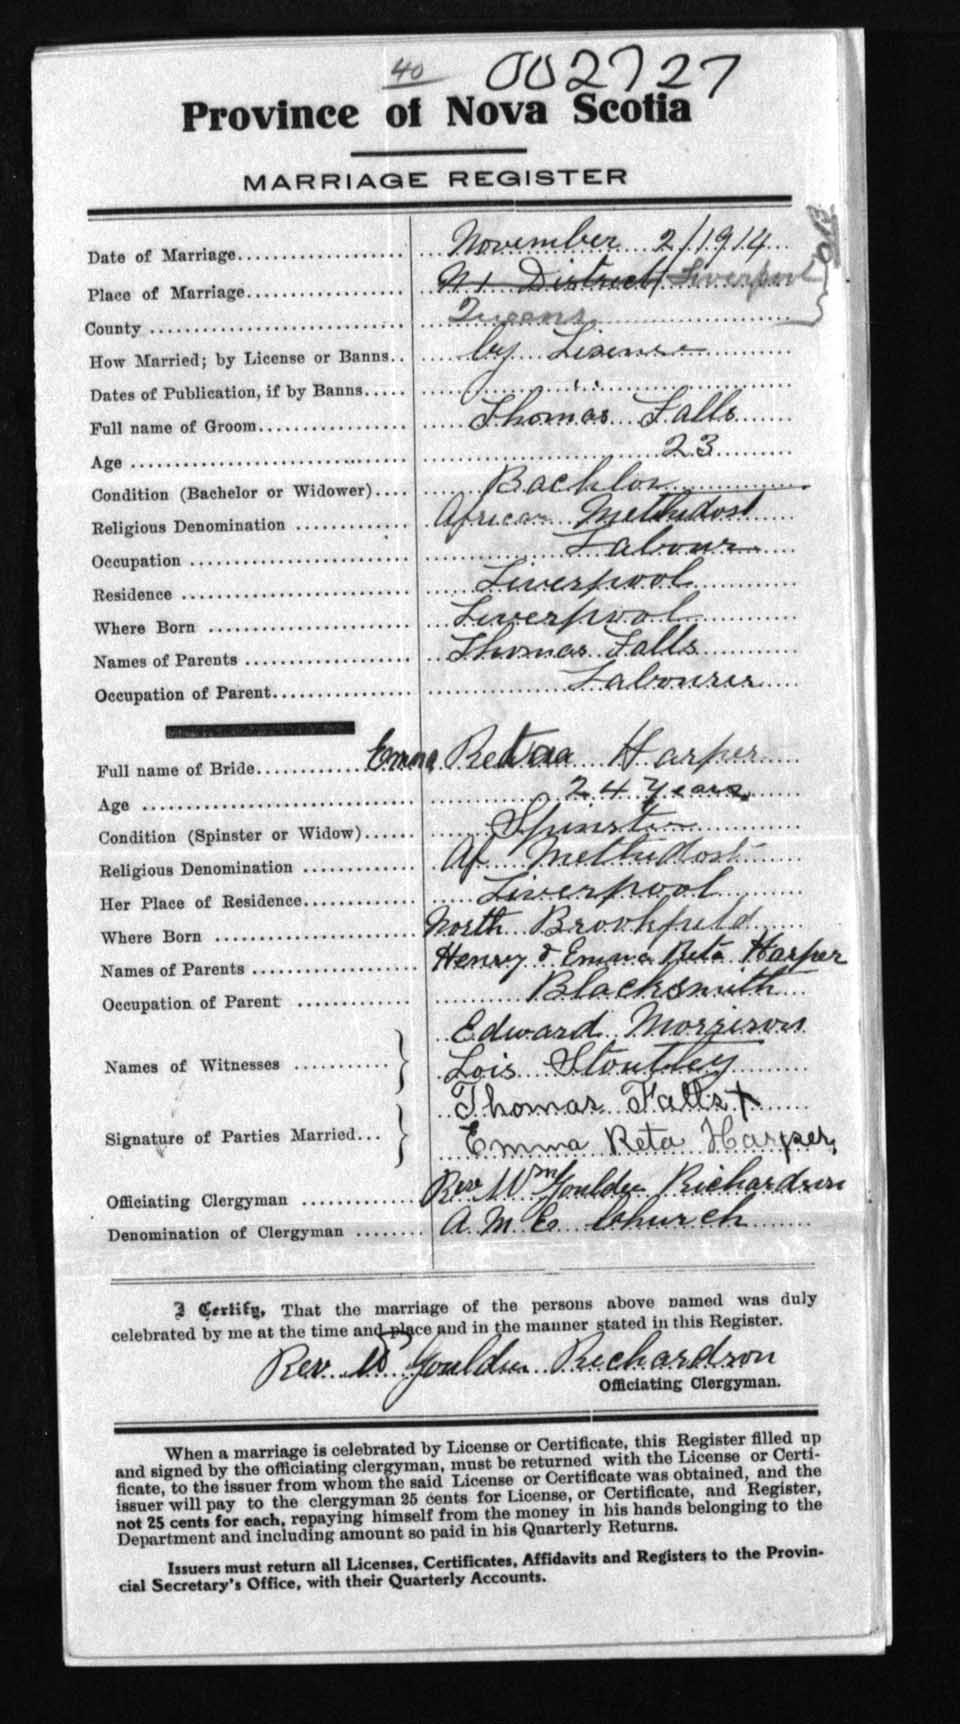 40 002727
Province of Nova Scotia
MARRIAGE REGISTER
Date of Marriage November 2/1914
Place of Marriage N1 District Liverpool
County Queens
How Married; by License or Banns by Lisense
Dates of Publication, if by Banns " "
Full name of Groom Thomas Falls
Age 23
Condition (Bachelor or Widower) Bachlor
Religious Denomination African Methodost
Occupation Labour
Residence Liverpool
Where Born Liverpool
Names of Parents Thomas Falls
Occupation of Parent Labourer
Full name of Bride Emma Retaa Harper
Age 24 years
Condition (Spinster or Widow) Spinster
Religious Denomination Af Methodost
Her Place of Residence Liverpool
Where Born North Brookfield
Names of Parents Henry & Emma Reta Harper
Occupation of Parent Blacksmith
Edward Morrison
Names of Witnesses
Lois Stoutley
Thomas Falls X
Signature of Parties Married
Emma Reta Harper
Officiating Clergyman Rev Wm Goulder Richardson
Denomination of Clergyman A M E Church
I Certify, That the marriage of the persons above named was duly
celebrated by me at the time and place and in the manner stated in this Register.
Rev Wm Goulder Richardson
Officiating Clergyman.
When a marriage is celebrated by License or Certificate, this Register filled up
and signed by the officiating clergyman, must be returned with the License or Certi-
ficate, to the issuer from whom the said License or Certificate was obtained, and the
issuer will pay to the clergyman 25 cents for License, or Certificate, and Register,
not 25 cents for each, repaying himself from the money in his hands belonging to the
Department and including amount so paid in his Quarterly Returns.
Issuers must return all Licenses, Certificates, Affidavits and Registers to the Provin-
cial Secretary's Office, with their Quarterly Accounts.